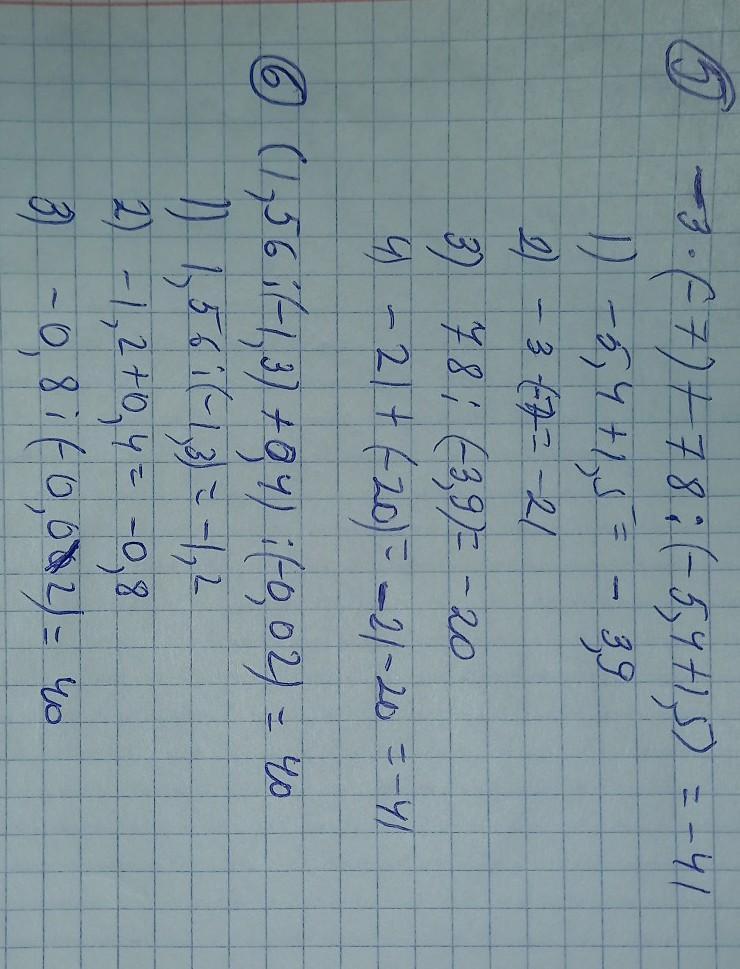 5 -3·(-7)+78:(-5,4+1,5) = -41
1) -5,4+1,5 = -3,9
2) -3·(-7)= -21
3) 78:(-3,9)= -20
4) -21+(-20)= -21-20 = -41
6 (1,56:(-1,3)+0,4):(-0,02) = 40
1) 1,56:(-1,3)= -1,2
2) -1,2+0,4= -0,8
3) -0,8:(-0,02)= 40